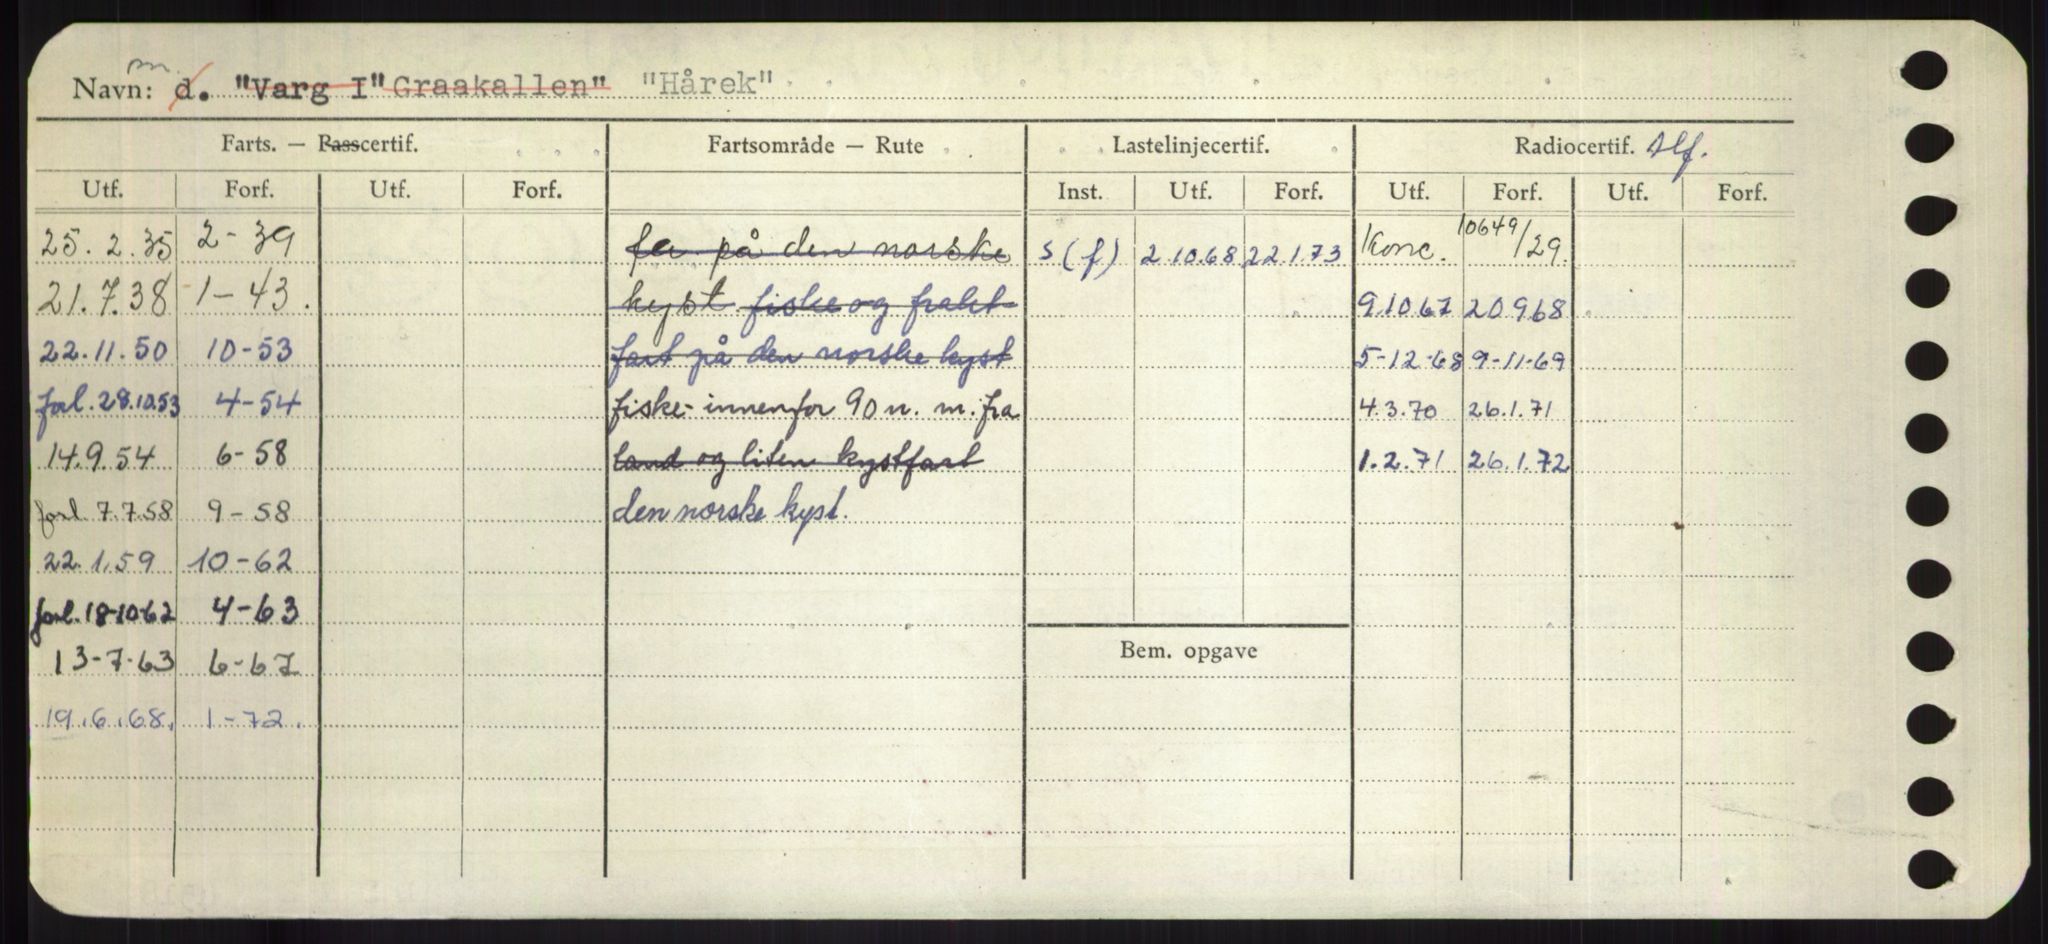 m.
Navn: d. "Varg I" Graakallen" "Hårek"
Farts. — Passcertif. Fartsområde — Rute Lastelinjecertif. Radiocertif.
Utf. Forf. Utf. Forf. Inst. Utf. Forf. Utf. Forf. Utf. Forf.
25.2.35 2-39 på den norske s (f) 2.10.68 22.1.73 Konc. 10649/29.
21.7.38 1-43. kyst fiske og frakt- 9.10.67 20.9.68
22.11.50 10-53 fart på den norske kyst 5-12-68 9-11-69
forl. 28.10.53 4-54 fiske- innenfor 90 n. m. fra 4.3.70 26.1.71
14.9.54 6-58 land og liten kystfart 1.2.71 26.1.72
forl. 7.7.58 9-58 den norske kyst.
22.1.59 10-62
forl. 18-10-62 4-63
13-7-63 6-67 Bem. opgave
19.6.68. 1-72.